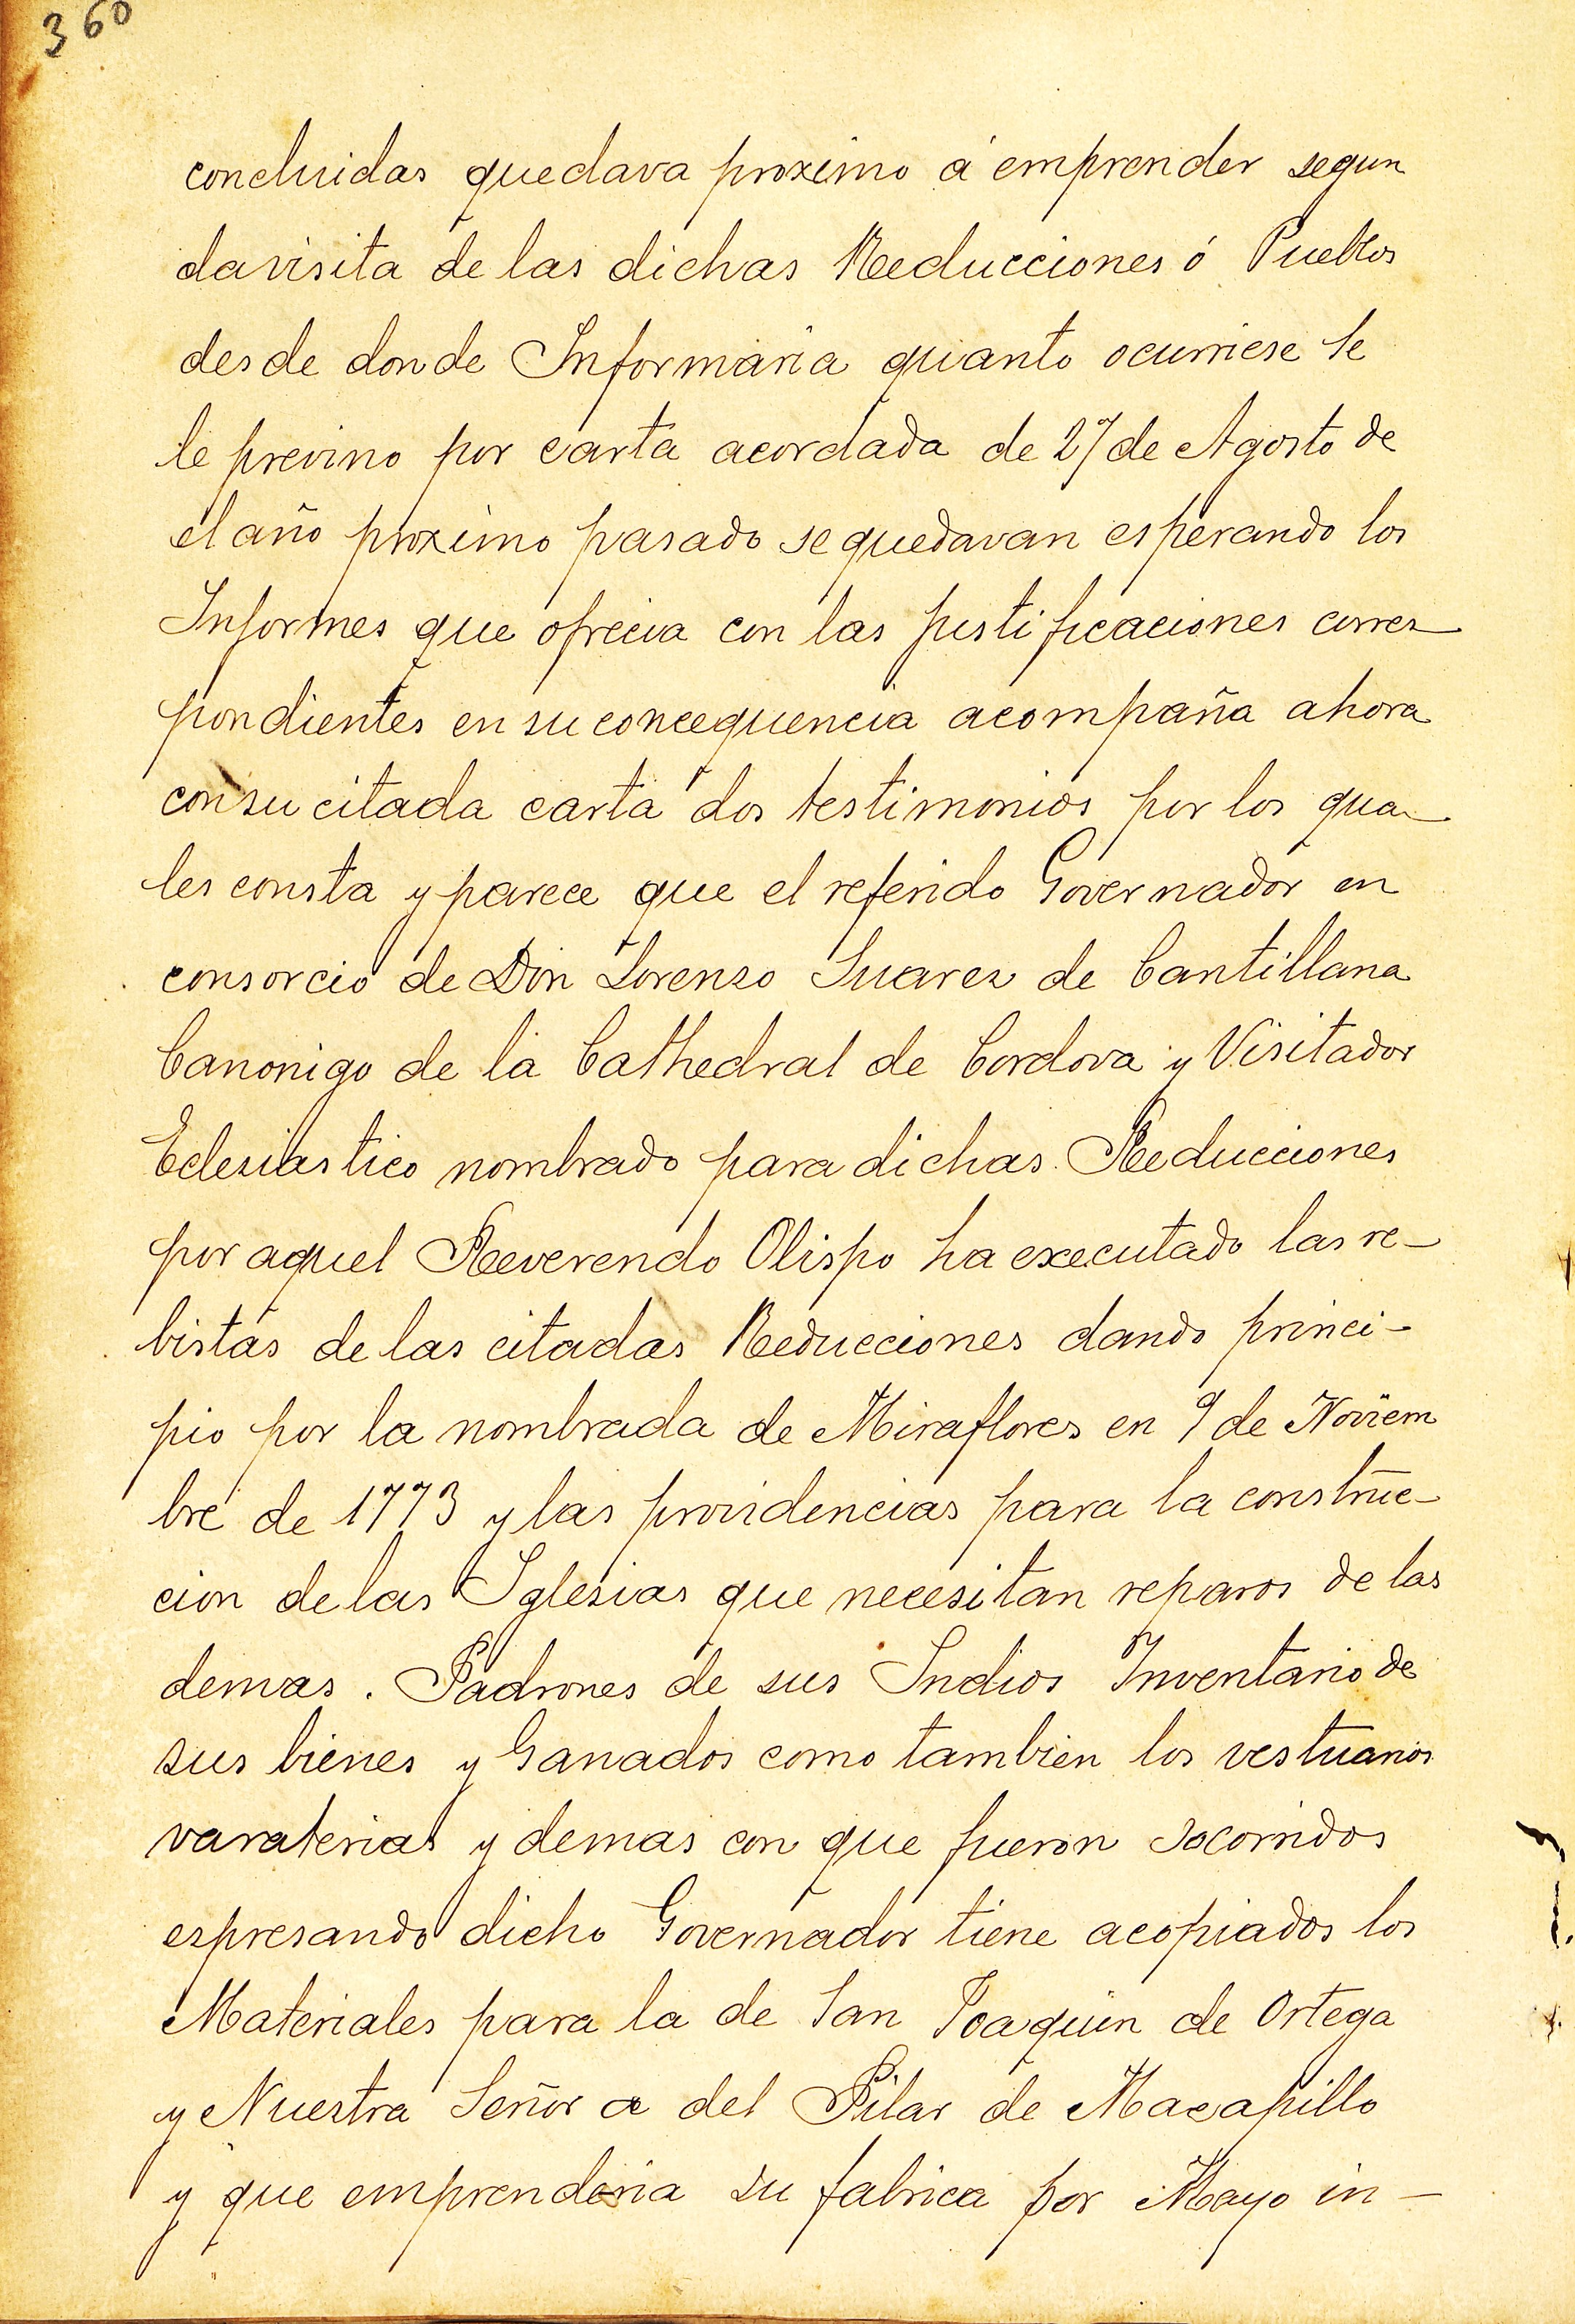 360
concluidas quedava proximo á emprender segun
da visita de las dichas Reducciones ó Pueblos
desde donde Informaria quanto ocurriese se
le previno por carta acordada de 27 de Agosto de
el año proximo pasado se quedavan esperando los
Informes que ofrecia con las justificaciones corres
pondientes en su concequencia acompaña ahora
con su citada carta dos testimonios por los qua-
les consta y parece que el referido Governador en
consorcio de Don Lorenzo Suarez de Cantillana
Canonigo de la Cathedral de Cordova y Visitador
Eclesiastico nombrado para dichas Reducciones
por aquel Reverendo Obispo ha executado las re-
bistas de las citadas Reducciones dando princi-
pio por la nombrada de Miraflores en 9 de Noviem
bre de 1773 y las providencias para la construc-
cion de las Iglesias que necesitan reparos de las
demas. Padrones de sus Indios Inventario de
sus bienes y Ganados como tambien los vestuarios
varaterias y demas con que fueron socorridos
espresando dicho Governador tiene acopiados los
Materiales para la de San Joaquin de Ortega
y Nuestra Señora del Pilar de Macapillo
y que emprenderia su fabrica por Mayo in-